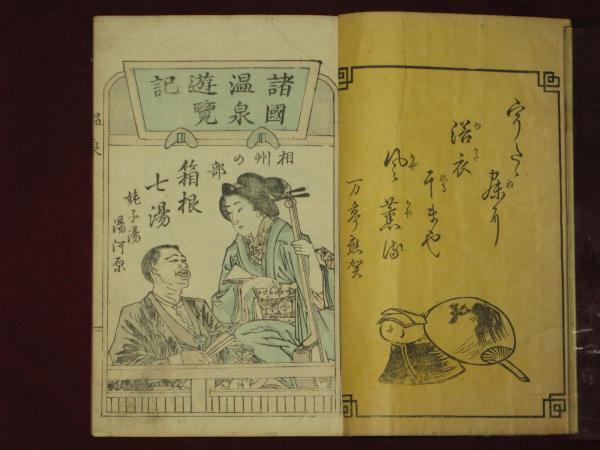 うたゝ寐の
浴衣
干すや
風薫る
万亭應賀
諸國
温泉
遊覧
記
相州の
部
箱根
七湯
姥子湯
湯河原